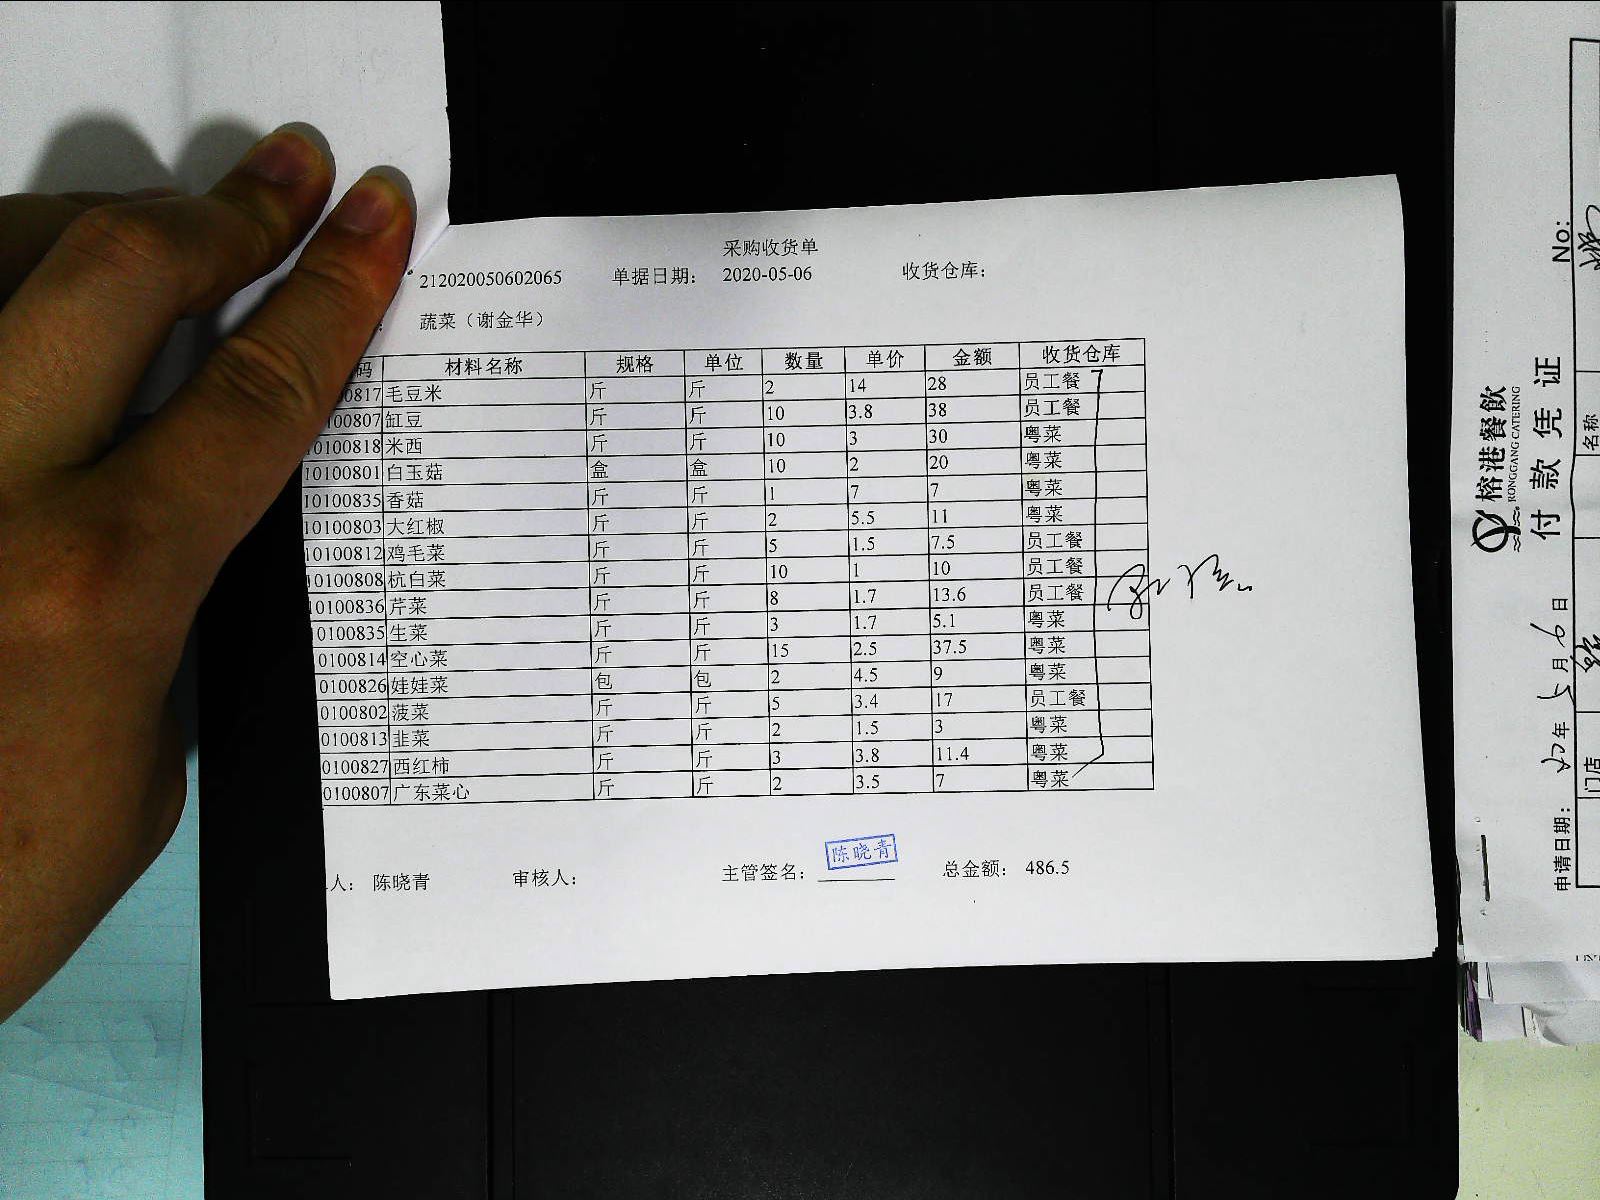 采购收货单
212020050602065 单据日期： 2020-05-06 收货仓库：
蔬菜（谢金华）
码 材料名称 规格 单位 数量 单价 金额 收货仓库
00817 毛豆米 斤 斤 2 14 28 员工餐
100807 缸豆 斤 斤 10 3.8 38 员工餐
10100818 米西 斤 斤 10 3 30 粤菜
10100801 白玉菇 盒 盒 10 2 20 粤菜
10100835 香菇 斤 斤 1 7 7 粤菜
10100803 大红椒 斤 斤 2 5.5 11 粤菜
10100812 鸡毛菜 斤 斤 5 1.5 7.5 员工餐
10100808 杭白菜 斤 斤 10 1 10 员工餐
10100836 芹菜 斤 斤 8 1.7 13.6 员工餐
0100835 生菜 斤 斤 3 1.7 5.1 粤菜
0100814 空心菜 斤 斤 15 2.5 37.5 粤菜
0100826 娃娃菜 包 包 2 4.5 9 粤菜
0100802 菠菜 斤 斤 5 3.4 17 员工餐
0100813 韭菜 斤 斤 2 1.5 3 粤菜
0100827 西红柿 斤 斤 3 3.8 11.4 粤菜
0100807 广东菜心 斤 斤 2 3.5 7 粤菜
人： 陈晓青 审核人： 主管签名： 陈晓青 总金额： 486.5
榕港餐飲
RONGGANG CATERING
付款凭证
No:
申请日期： 年 5 月 9 日
门店 名称